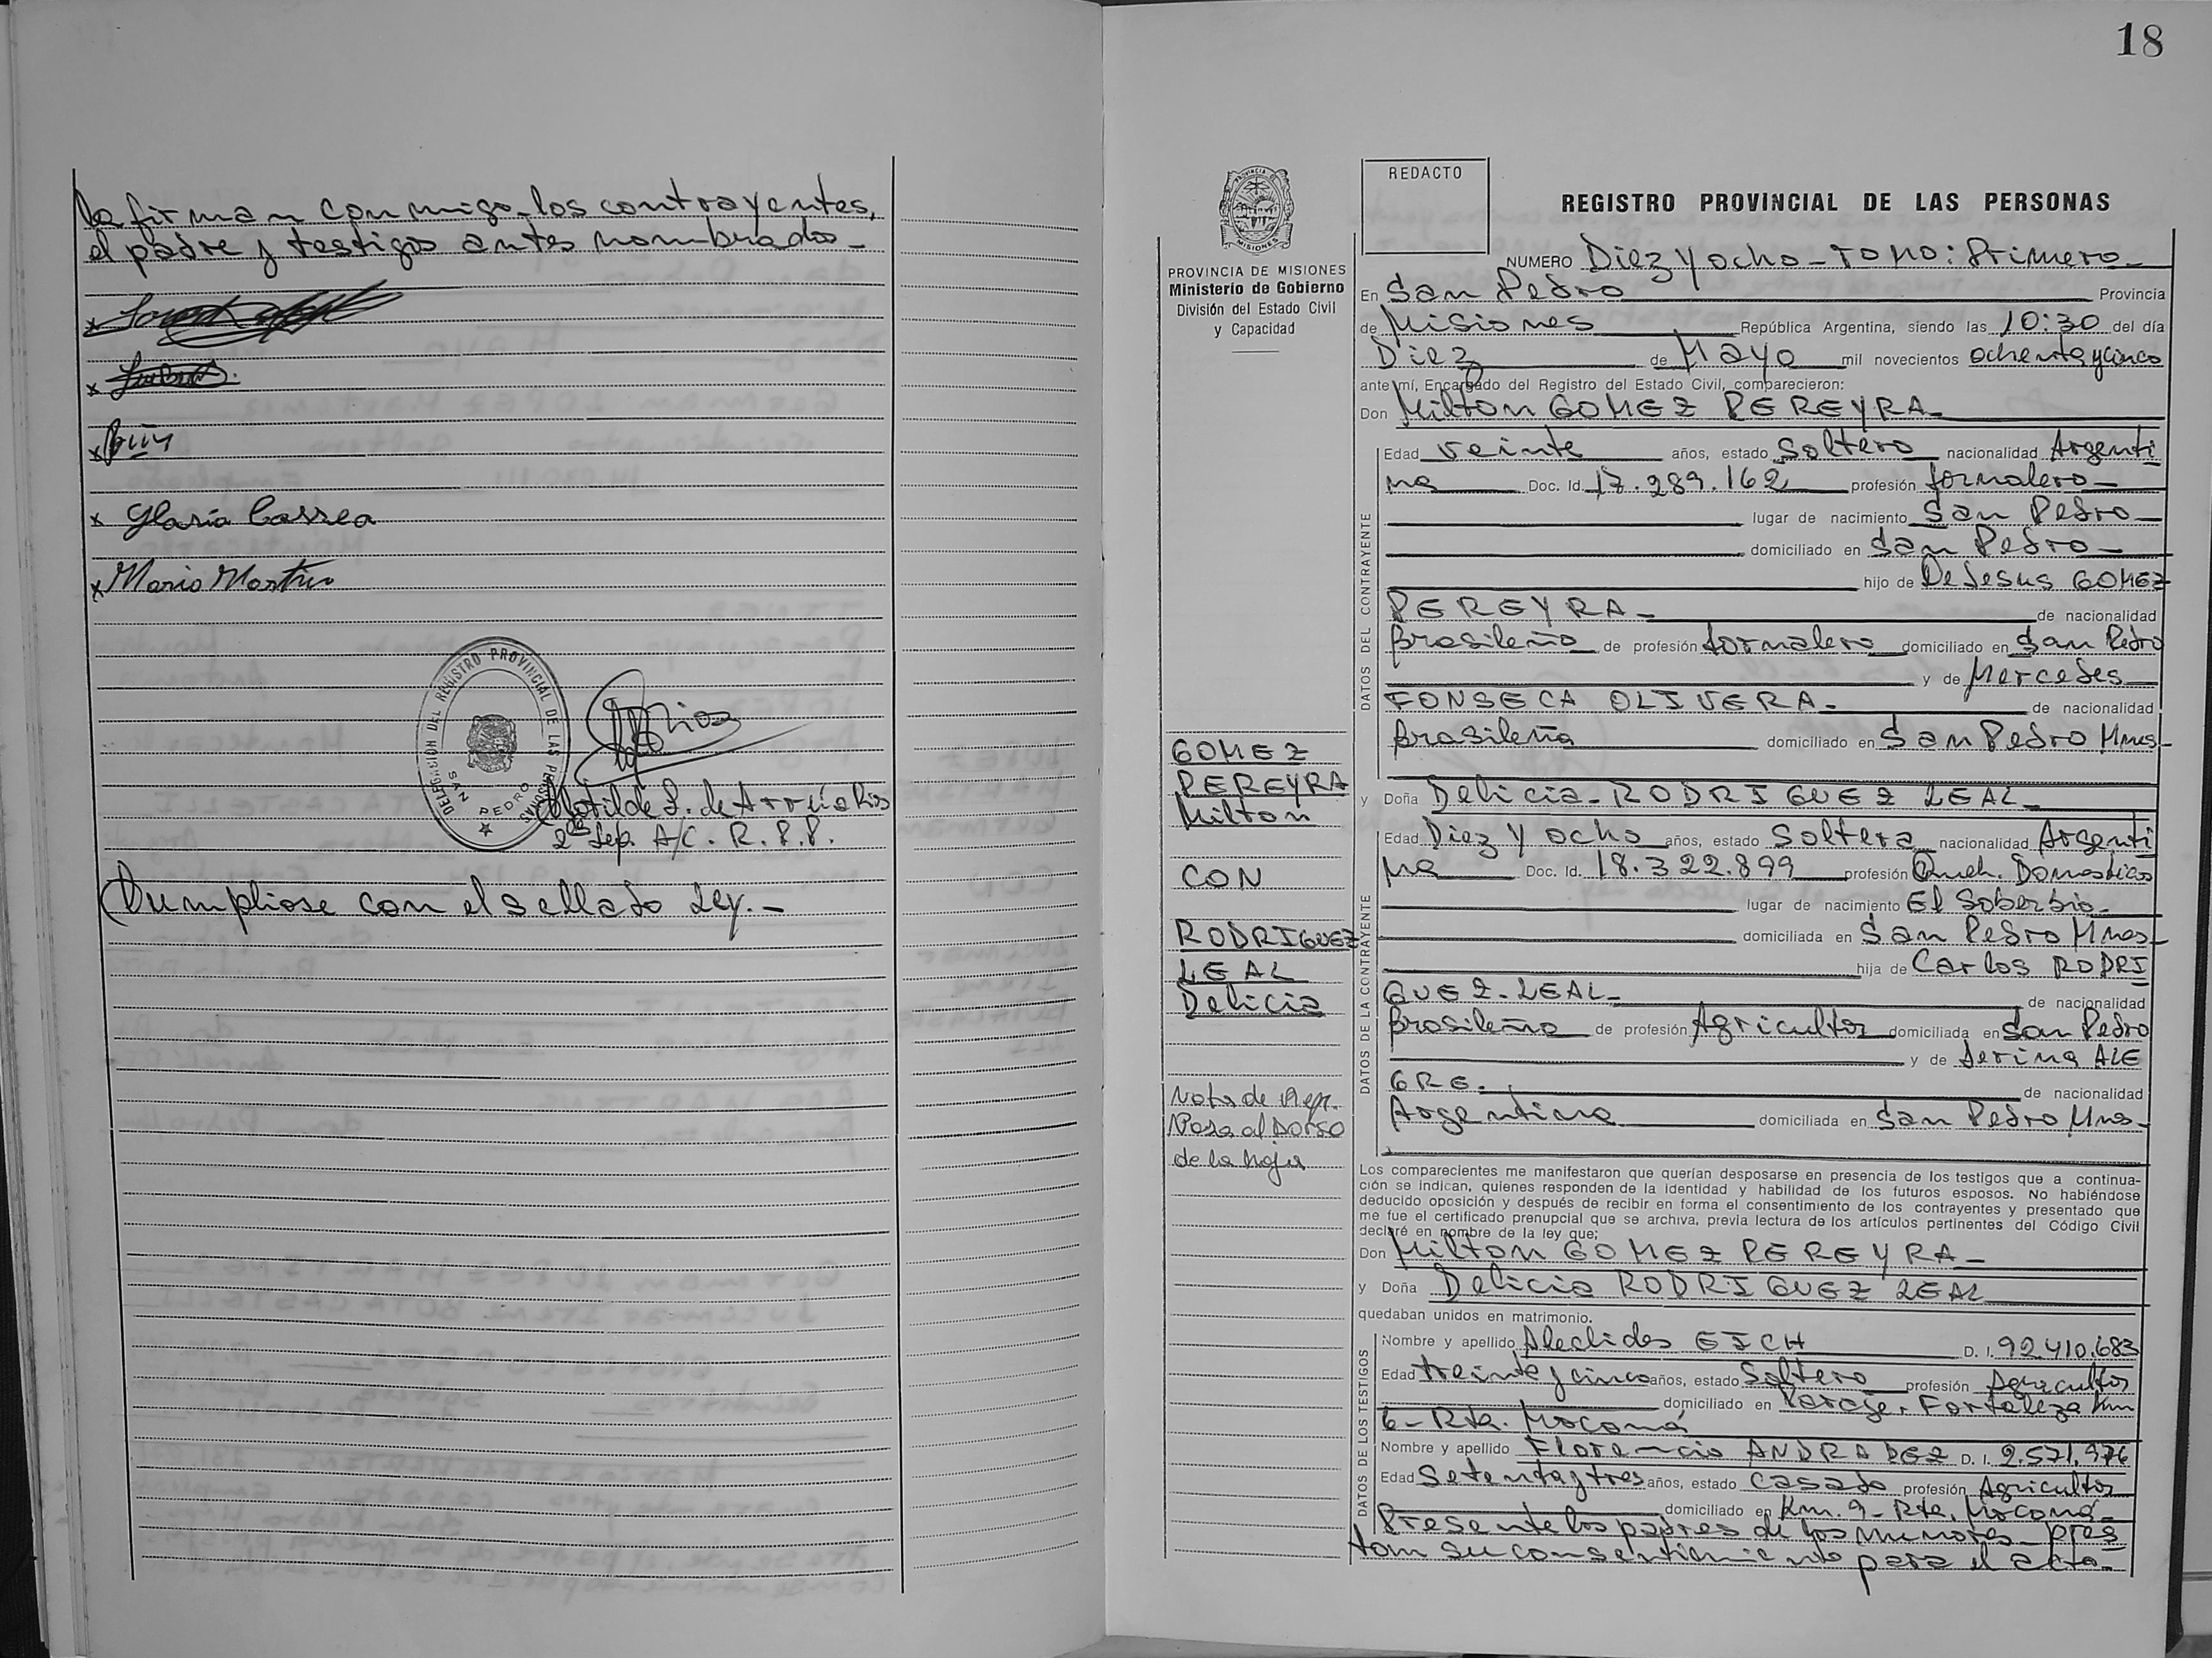 la firman conmigo los contrayentes,
el padre y testigos antes nombrados -
x
x
x
x Gloria Correa
x Mario Martins
DELEGACION DEL REGISTRO PROVINCIAL DE LAS PERSONAS
SAN PEDRO
Matilde S. de Arrúa Rios
2da Sep. A/C. R.P.P.
Cumpliose con el sellado Ley. -
18
PROVINCIA DE MISIONES
Ministerio de Gobierno
División del Estado Civil
y Capacidad
GOMEZ
PEREYRA
Milton
CON
RODRIGUEZ
LEAL
Delicia
Nota de Rep.
Pasa al Dorso
de la hoja
REDACTO
REGISTRO PROVINCIAL DE LAS PERSONAS
NUMERO Diez y ocho - TOMO: Primero -
En San Pedro Provincia
de Misiones República Argentina, siendo las 10:30 del día
Diez de Mayo mil novecientos ochenta y cinco
ante mí, Encargado del Registro del Estado Civil, comparecieron:
Don Milton GOMEZ PEREYRA -
DATOS DEL CONTRAYENTE
Edad veinte años, estado Soltero nacionalidad Argenti
na Doc. Id. 17.289.162 profesión Jornalero -
lugar de nacimiento San Pedro -
domiciliado en San Pedro -
hijo de De Jesus GOMEZ
PEREYRA - de nacionalidad
Brasileño de profesión Jornalero domiciliado en San Pedro
y de Mercedes
FONSECA OLIVERA - de nacionalidad
Brasileña domiciliado en San Pedro Mnes -
y Doña Delicia - RODRIGUEZ LEAL -
DATOS DE LA CONTRAYENTE
Edad Diez y ocho años, estado Soltera nacionalidad Argenti
na Doc. Id. 18.322.899 profesión Queh. Domesticos
lugar de nacimiento El Soberbio -
domiciliada en San Pedro Mnes -
hija de Carlos RODRI
GUEZ - LEAL - de nacionalidad
Brasileño de profesión Agricultor domiciliada en San Pedro
y de Jerina ALE
GRE. de nacionalidad
Argentina domiciliada en San Pedro Mnes -
Los comparecientes me manifestaron que querían desposarse en presencia de los testigos que a continua-
ción se indican, quienes responden de la identidad y habilidad de los futuros esposos. No habiéndose
deducido oposición y después de recibir en forma el consentimiento de los contrayentes y presentado que
me fue el certificado prenupcial que se archiva, previa lectura de los artículos pertinentes del Código Civil
declaré en nombre de la ley que;
Don Milton GOMEZ PEREYRA -
y Doña Delicia RODRIGUEZ LEAL
quedaban unidos en matrimonio.
DATOS DE LOS TESTIGOS
Nombre y apellido Aleclides EICH D. I. 92.410.683
Edad treinta y cinco años, estado Soltero profesión Agricultor
domiciliado en Paraje. Fortaleza Km
6 - Rta. Moconá
Nombre y apellido Florencio ANDRADEZ D. I. 2.571.976
Edad Setenta y tres años, estado Casado profesión Agricultor
domiciliado en Km. 9 - Rta. Moconá -
Presente los padres de los menores pres
tan su consentimiento para el acto -